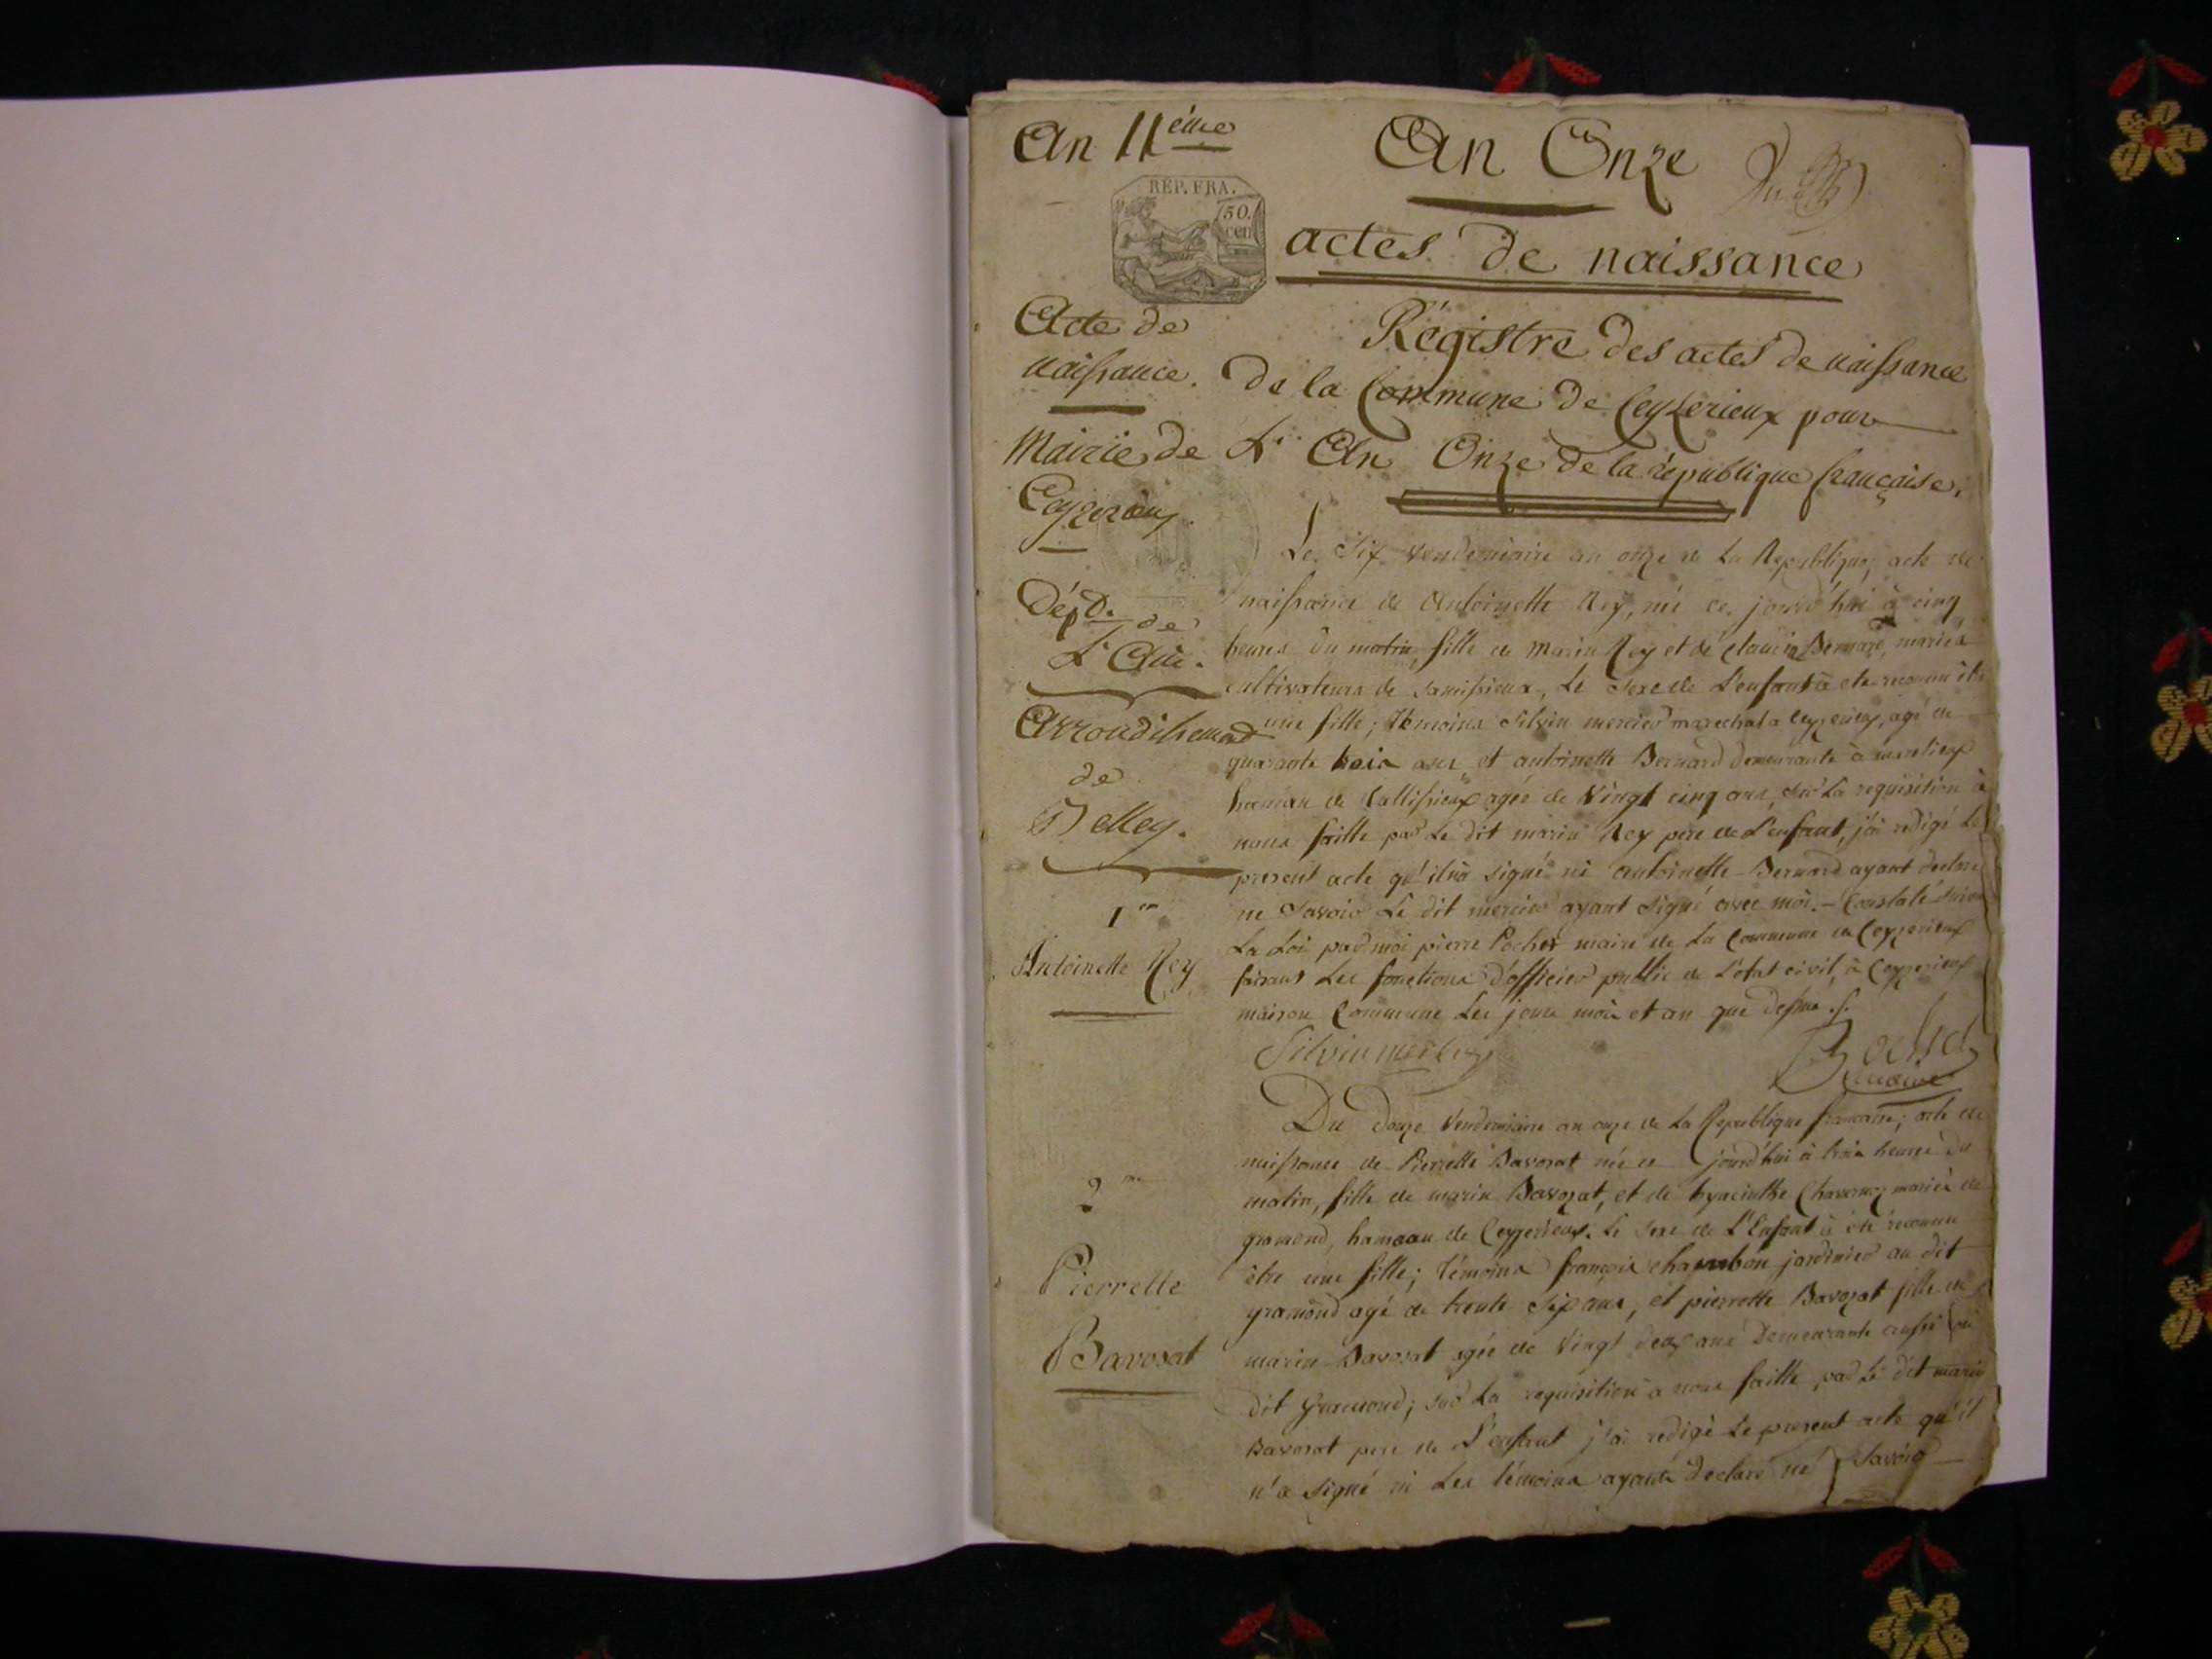 An 11ème
An Onze
RÉP. FRA.
50.
cen
actes de naissance
Acte de
naissance.
Régistre des actes de naissance
de la Commune de Ceyzerieux pour
L'An Onze de la république française.
Mairie de
Ceyzerieux.
Dépt. de
L'Ain.
Arrondissement
de
Belley.
1er
Antoinette Rey
Le Six vendemiaire an onze de La Republique, acte de
naissance de Antoinette Rey, née ce jourd'hui à cinq
heures du matin, fille de Marin Rey et de Claudia Bernard, mariés
cultivateurs de, Le Sexe de L'enfant à été reconnu être
une fille; Témoins Silvin mercier marechal a Ceyzerieux, agé de
quarante trois ans, et antoinette Bernard demeurante à
hameau de agée de Vingt cinq ans, sur La requisition à
nous faitte par Le dit marin Rey pere de L'enfant, j'ai redigé Le
present acte qu'il n'a signé ni antoinette Bernard ayant declaré
ne Savoir Le dit mercier ayant signé avec moi. - Constaté suivant
La Loi par moi pierre Pochet maire de La Commune de Ceyzerieux
faisant Les fonctions d'officier public de L'état civil, à Ceyzerieux
maison Commune Les jours mois et an que dessus.
Silvin mercier
Pochet
maire
2me
Pierrette
Bavozat
Du Douze Vendemiaire an onze de La Republique francaise; acte de
naissance de Pierrette Bavozat née ce jourd'hui à trois heures du
matin, fille de marin Bavozat, et de hyacinthe Chavornoz mariés de
gramond, hameau de Ceyzerieux. Le sexe de L'Enfant à été reconnu
être une fille; Témoins françois chambon jardinier au dit
gramond agé de trente Six ans, et pierrette Bavozat fille de
marin Bavozat agée de Vingt deux ans Demeurante aussi au
dit Gramond; sur La requisition a nous faitte par Le dit marin
Bavozat pere de L'enfant j'ai redigé Le present acte qu'il
n'a signé ni Les témoins ayants declaré ne Savoir